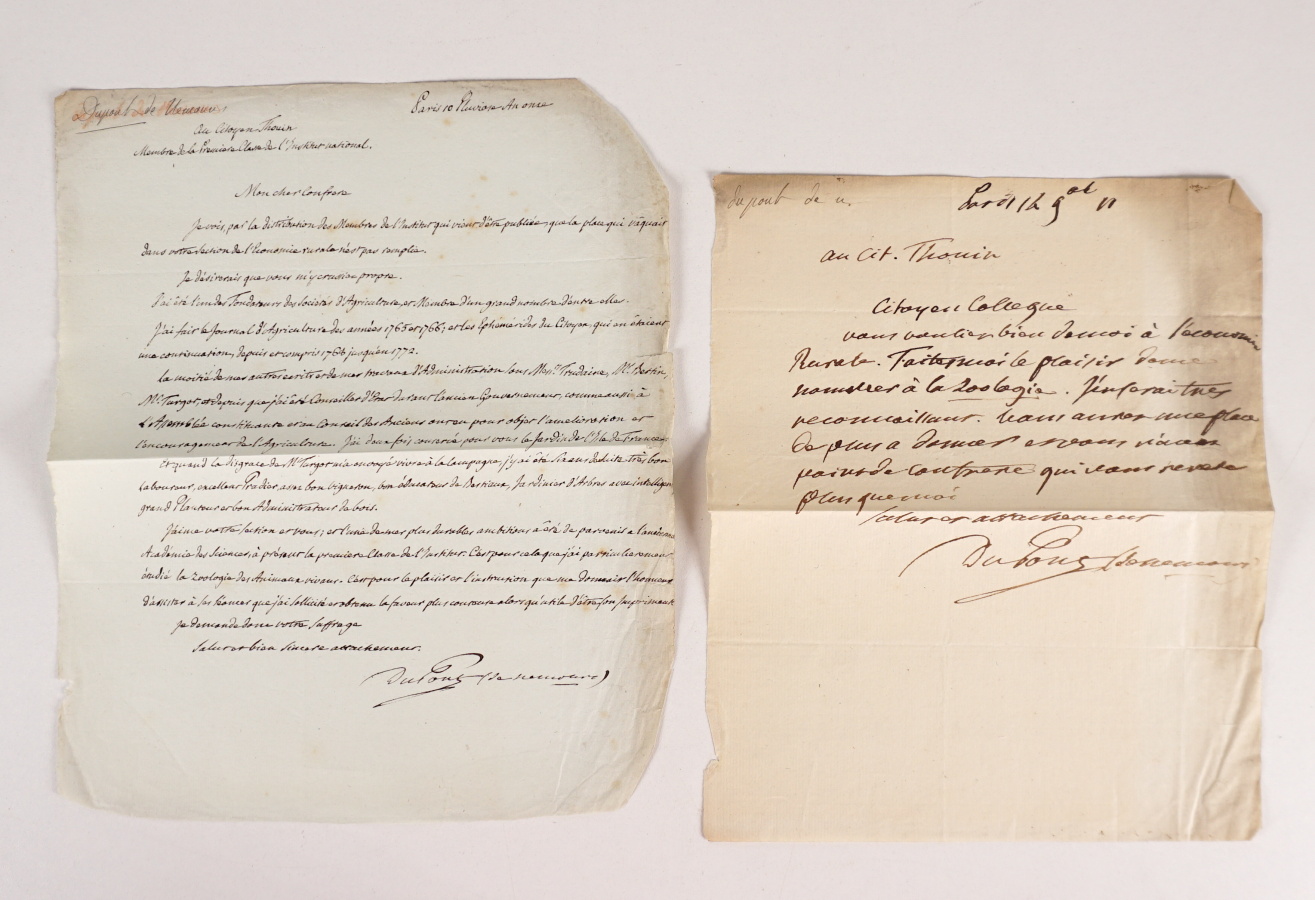 Dupont de Nemours
Paris 10 Pluviose An onze
Au Citoyen Thouin
Membre de la Premiere Classe de l'Institut national.
Mon cher Confrere
Je vois, par la distribution des Membres de l'Institut qui vient d'être publiée, que la place qui vaquait
dans votre Section de l'Economie rurale n'est pas remplie.
Je désirerais que vous m'y crussiez propre.
J'ai été l'un des Fondateurs des Sociétés d'Agriculture, et Membre d'un grand nombre d'entre elles.
J'ai fait le Journal d'Agriculture des années 1765 et 1766; et les Ephémérides du Citoyen, qui en étaient
une continuation, depuis et compris 1768 jusqu'en 1772.
La moitié de mes autres écrits et de mes travaux d'Administration sous Messrs. Trudaine, Mr. Bertin,
Mr. Turgot, et depuis que j'ai été Conseiller d'Etat durant l'ancien Gouvernement, comme aussi à
l'Assemblée constituante et au Conseil des Anciens ont eu pour objet l'amélioration et
l'encouragement de l'Agriculture. J'ai deux fois conservé pour vous le Jardin de l'Isle de France.
Et quand la disgrace de Mr. Turgot m'a envoyé vivre à la Campagne, j'y ai été six ans de suite très bon
Laboureur, excellent Pradier, assez bon Vigneron, bon éducateur de Bestiaux, Jardinier d'Arbres avec intelligence
grand Planteur et bon Administrateur de bois.
J'aime votre Section et vous; et l'une de mes plus durables ambitions a été de parvenir à l'ancienne
Académie des Sciences, à présent la premiere Classe de l'Institut. C'est pour cela que j'ai particulierement
étudié la Zoologie des Animaux vivans. C'est pour le plaisir et l'instruction que me donnait l'honneur
d'assister à ses Séances que j'ai sollicité et obtenu la faveur plus couteuse alors qu'utile d'être son Imprimeur
je demande donc votre Suffrage
Salut et bien sincere attachement.
DuPont (de nemours)
dupont de n.
Paris 11
au Cit. Thouin
Citoyen Collegue
vous vouliez bien de moi à l'economie
Rurale. Faites moi le plaisir de me
nommer à la Zoologie. J'en serai très
reconnaissant. Vous aurez une place
de plus a donner et vous n'avez
point de Confrere qui vous revere
plus que moi
Salut et attachement
DuPont (de nemours)